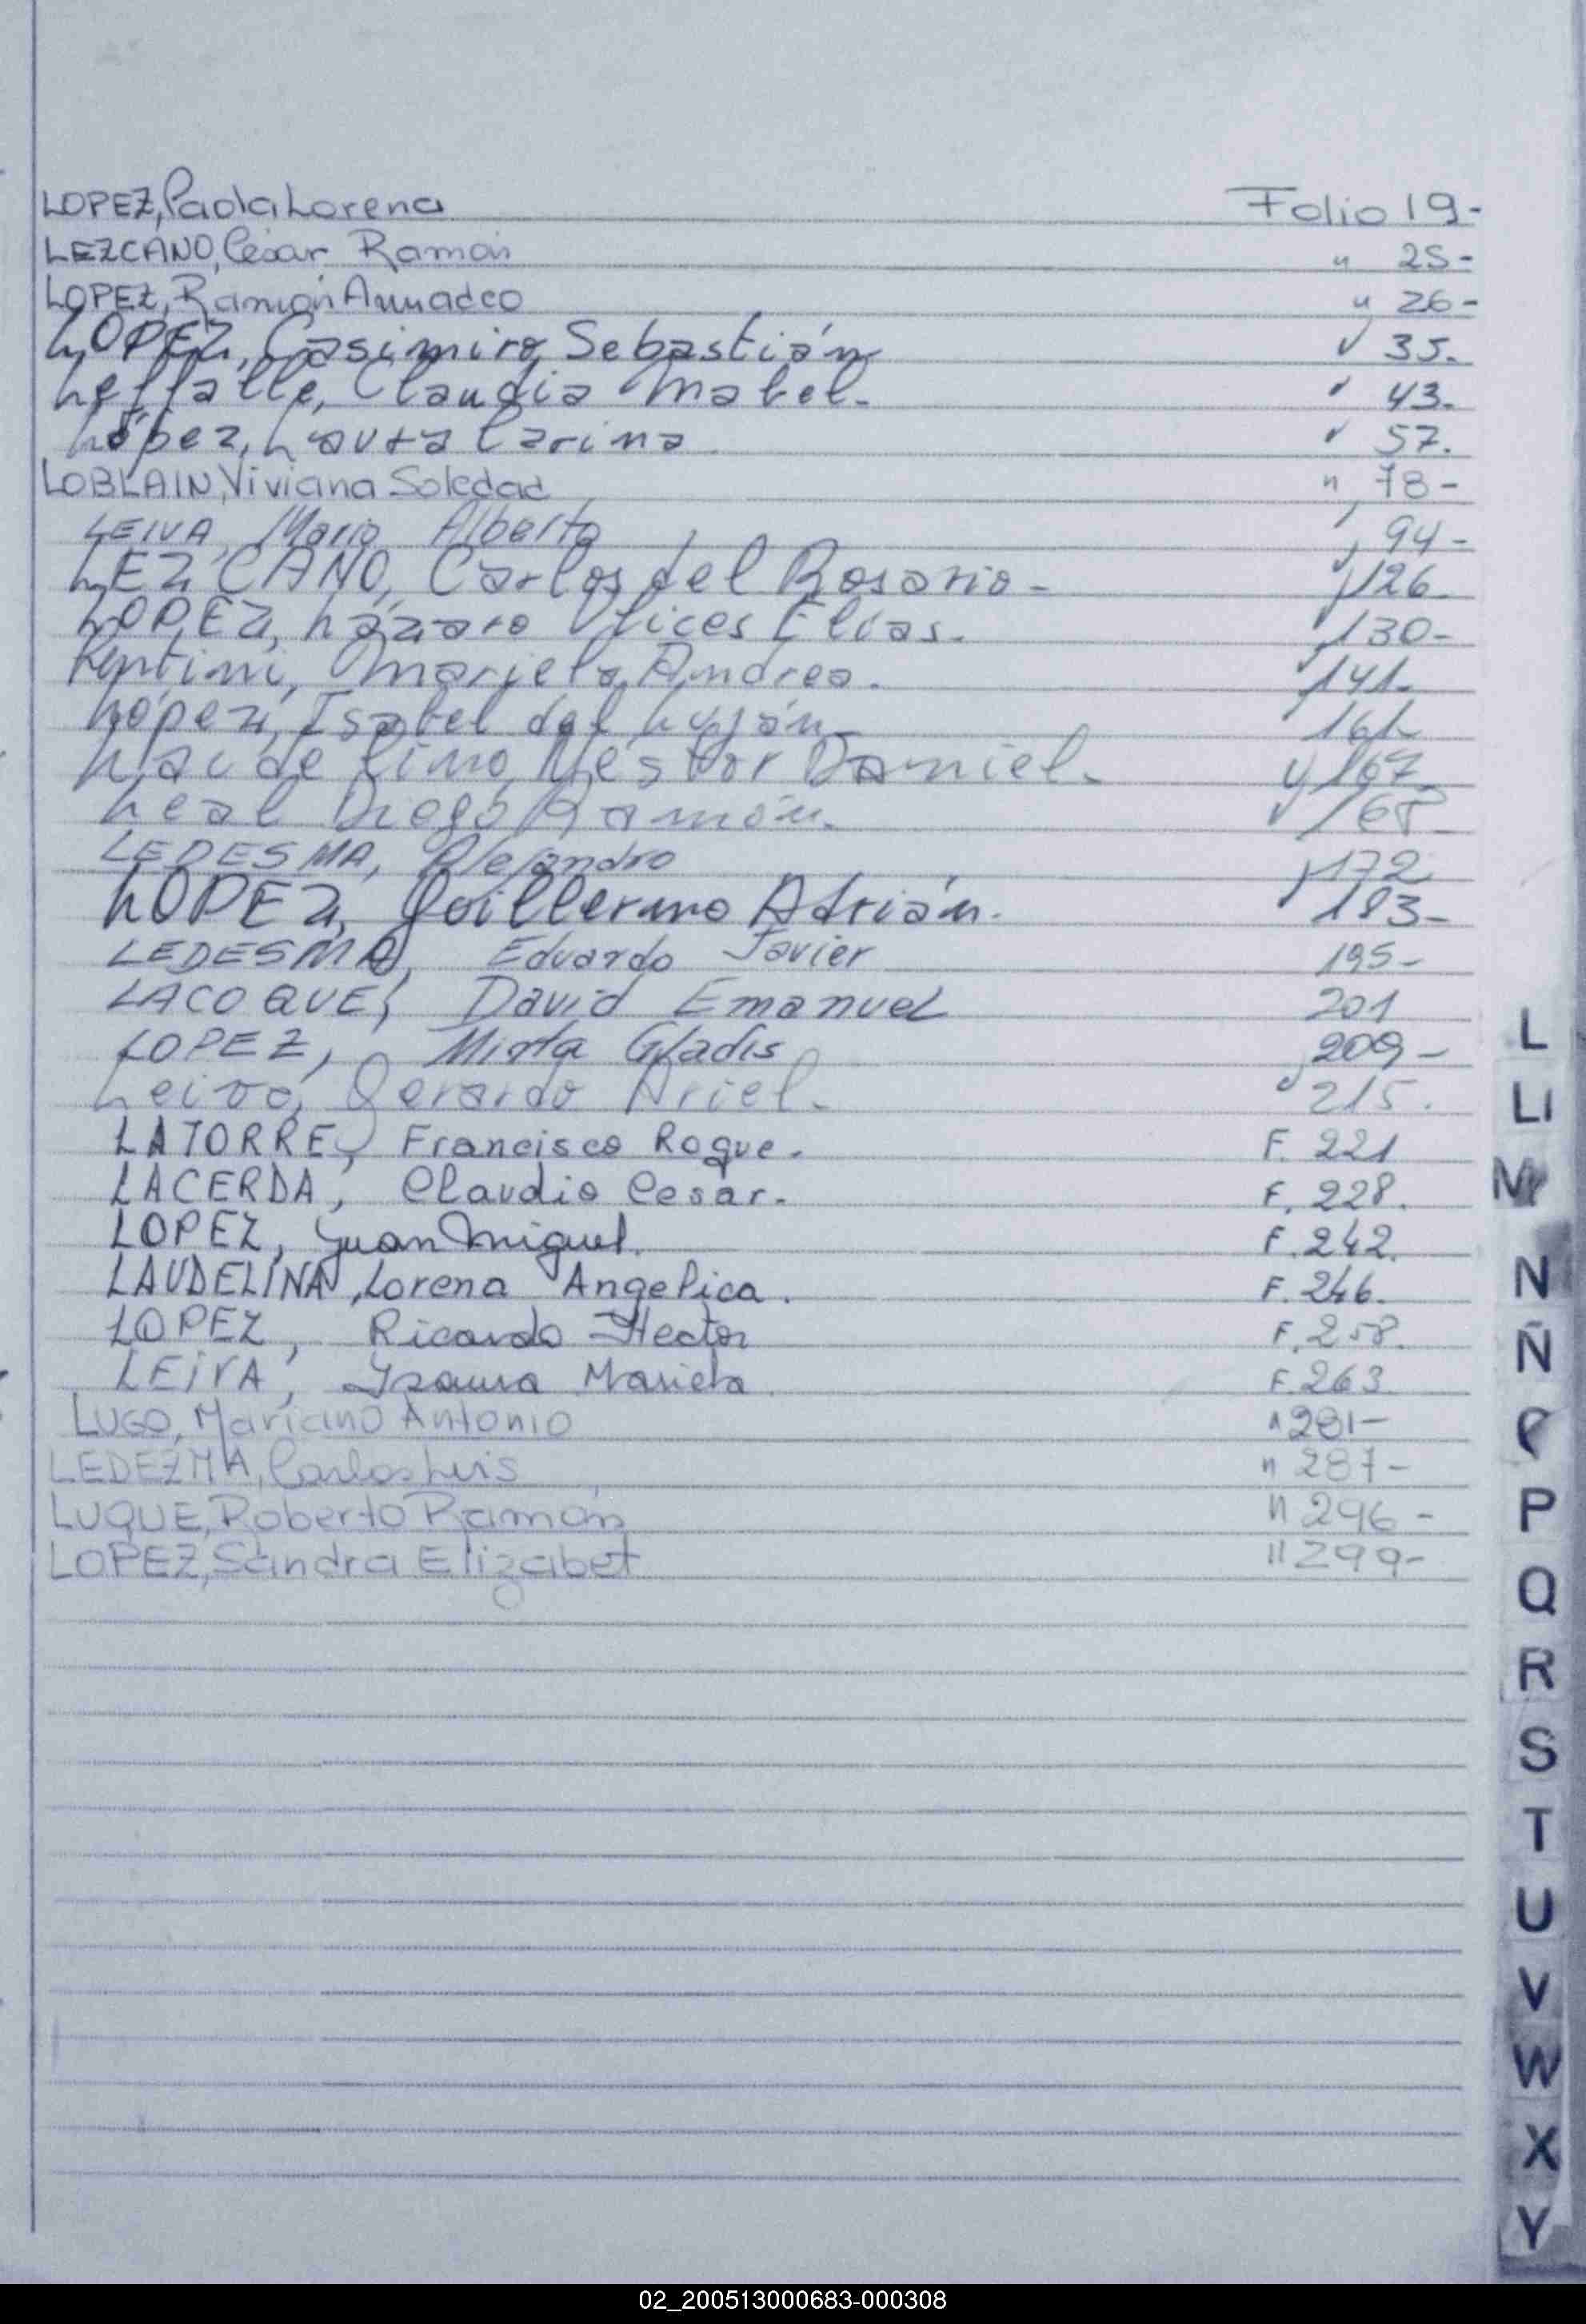 LOPEZ, Paola Lorena Folio 19-
LEZCANO, César Ramón " 25-
LOPEZ, Ramón Amadeo " 26-
LOPEZ, Casimiro Sebastián " 35.
Leffalle, Claudia Mabel. " 43.
López, Laura Carina. " 57.
LOBLAIN, Viviana Soledad " 78-
LEIVA, Mario Alberto " 94-
LEZCANO, Carlos del Rosario- " 126.
LOPEZ, Lázaro Ulices Elías. " 130-
Lentini, Mariela Andrea. " 141-
López, Isabel del Luján- 161-
Néstor Daniel- " 167
Leal Diego Ramón. " 168-
LEDESMA, Alejandro " 172
LOPEZ, Guillermo Adrián. " 183-
LEDESMA, Eduardo Javier 195-
LACOQUE, David Emanuel 201
LOPEZ, Mirta Gladis 209-
Leiva, Gerardo Ariel- " 215.
LATORRE, Francisco Roque. F. 221
LACERDA, Claudio Cesar. F. 228.
LOPEZ, Juan Miguel. F. 242.
LAUDELINA, Lorena Angelica. F. 246.
LOPEZ, Ricardo Hector F. 258.
LEIVA, Ysaura Mariela. F. 263
LUGO, Mariano Antonio " 281-
LEDEZMA, Carlos Luis " 287-
LUQUE, Roberto Ramón " 296-
LOPEZ, Sandra Elizabet " 299-
L
LI
M
N
Ñ
P
Q
R
S
T
U
V
W
X
Y
02_200513000683-000308